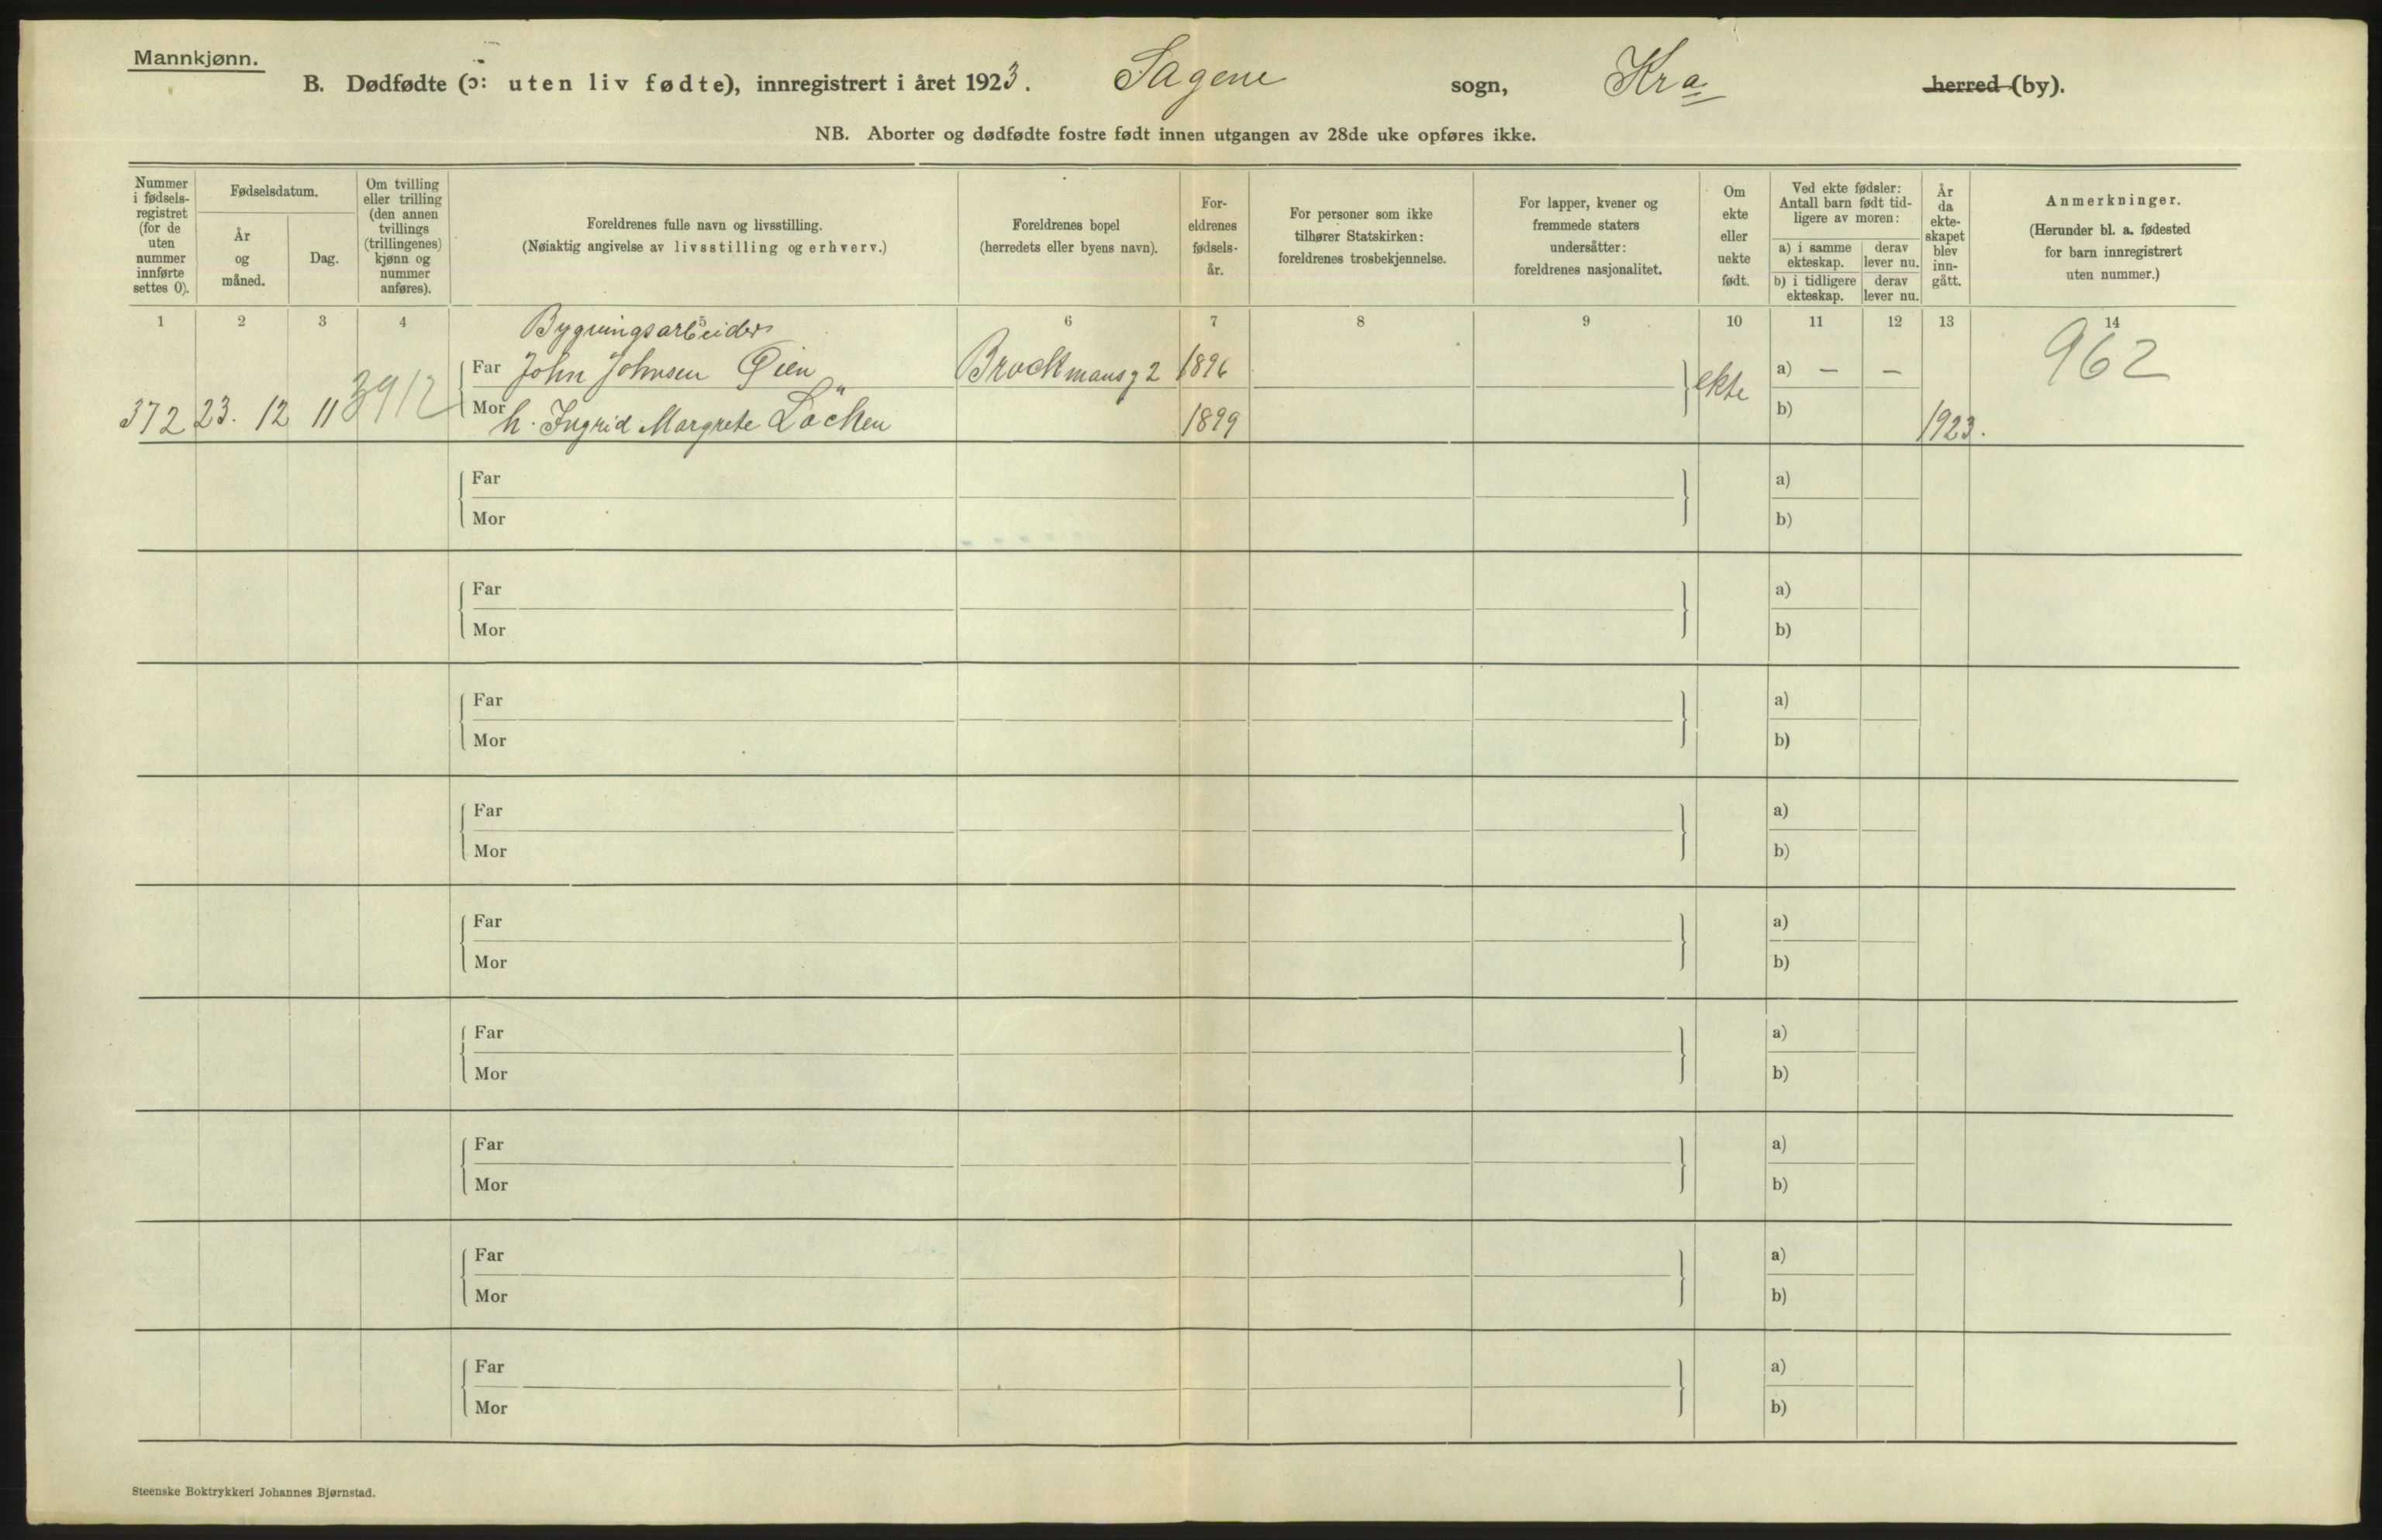 Mannkjønn.
B. Dødfødte (ɔ: uten liv fødte), innregistrert i året 1923. Sagene sogn, Kra herred (by).
NB. Aborter og dødfødte fostre født innen utgangen av 28de uke opføres ikke.
Nummer
i fødsels-
registret
(for de
uten
nummer
innførte
settes 0).
Fødselsdatum.
År
og
måned.
Dag.
Om tvilling
eller trilling
(den annen
tvillings
(trillingenes)
kjønn og
nummer
anføres).
Foreldrenes fulle navn og livsstilling.
(Nøiaktig angivelse av livsstilling og erhverv.)
Foreldrenes bopel
(herredets eller byens navn).
For-
eldrenes
fødsels-
år.
For personer som ikke
tilhører Statskirken:
foreldrenes trosbekjennelse.
For lapper, kvener og
fremmede staters
undersåtter:
foreldrenes nasjonalitet.
Om
ekte
eller
uekte
født.
Ved ekte fødsler:
Antall barn født tid-
ligere av moren:
a) i samme
ekteskap.
derav
lever nu.
b) i tidligere
ekteskap.
derav
lever nu.
År
da
ekte-
skapet
blev
inn-
gått.
Anmerkninger.
(Herunder bl. a. fødested
for barn innregistrert
uten nummer.)
1 2 3 4 5 6 7 8 9 10 11 12 13 14
Bygningsarbeider
Far John Johnsen Øien Brockmansg 2 1896 a) – – 962
372 23. 12 11 3912 Mor h. Ingrid Margrete Löcken 1899 ekte b) 1923.
Far a)
Mor b)
Far a)
Mor b)
Far a)
Mor b)
Far a)
Mor b)
Far a)
Mor b)
Far a)
Mor b)
Far a)
Mor b)
Far a)
Mor b)
Far a)
Mor b)
Steenske Boktrykkeri Johannes Bjørnstad.